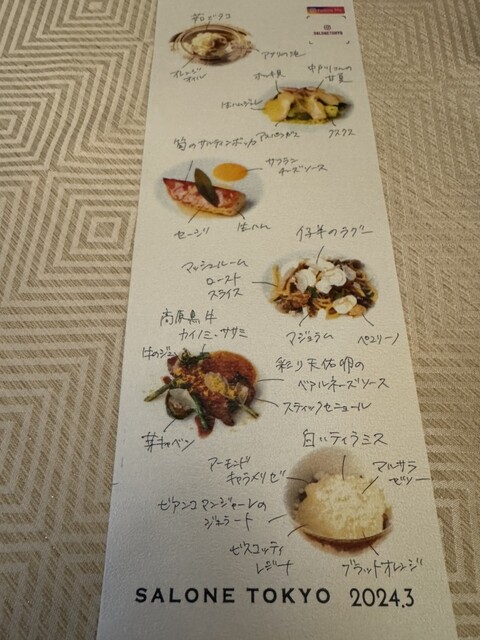 SALONE TOKYO
岩ダコ
アサリの泡
オレンジ
オイル
ホッキ貝
甘夏
生ハムジュレ
アスパラガス
クスクス
筍のサルティンボッカ
サフラン
チーズソース
セージ
生ハム
仔羊のラグー
マッシュルーム
ロースト
スライス
マジョラム
ペコリーノ
カイノミ、ササミ
牛のジュ
彩り天佑卵の
ベアルネーズソース
スティックセニョール
芽キャベツ
白いティラミス
アーモンド
キャラメリゼ
マルサラ
ゼリー
ビアンコマンジャーレの
ジェラート
ビスコッティ
レジーナ
ブラッドオレンジ
SALONE TOKYO 2024.3